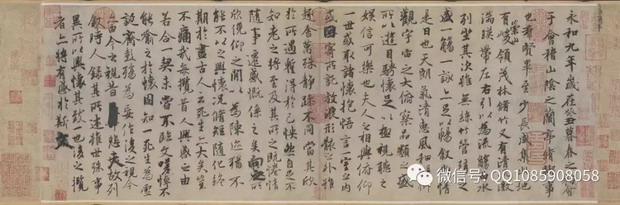 永和九年歲在癸丑暮春之初會
于會稽山陰之蘭亭脩稧事
也羣賢畢至少長咸集此地
有崇山峻領茂林脩竹又有清流激
湍暎帶左右引以為流觴曲水
列坐其次雖無絲竹管弦之
盛一觴一詠亦足以暢敘幽情
是日也天朗氣清惠風和暢仰
觀宇宙之大俯察品類之盛
所以遊目騁懷足以極視聽之
娛信可樂也夫人之相與俯仰
一世或取諸懷抱悟言一室之內
或因寄所託放浪形骸之外雖
趣舍萬殊靜躁不同當其欣
於所遇蹔得於己怏然自足不
知老之將至及其所之既惓情
隨事遷感慨係之矣向之所
欣俛仰之間以為陳迹猶不
能不以之興懷況脩短隨化終
期於盡古人云死生亦大矣豈
不痛哉每攬昔人興感之由
若合一契未嘗不臨文嗟悼不
能喻之於懷固知一死生為虛
誕齊彭殤為妄作後之視今
亦由今之視昔悲夫故列
敘時人錄其所述雖世殊事
異所以興懷其致一也後之攬
者亦將有感於斯文
微信号: QQ1085908058